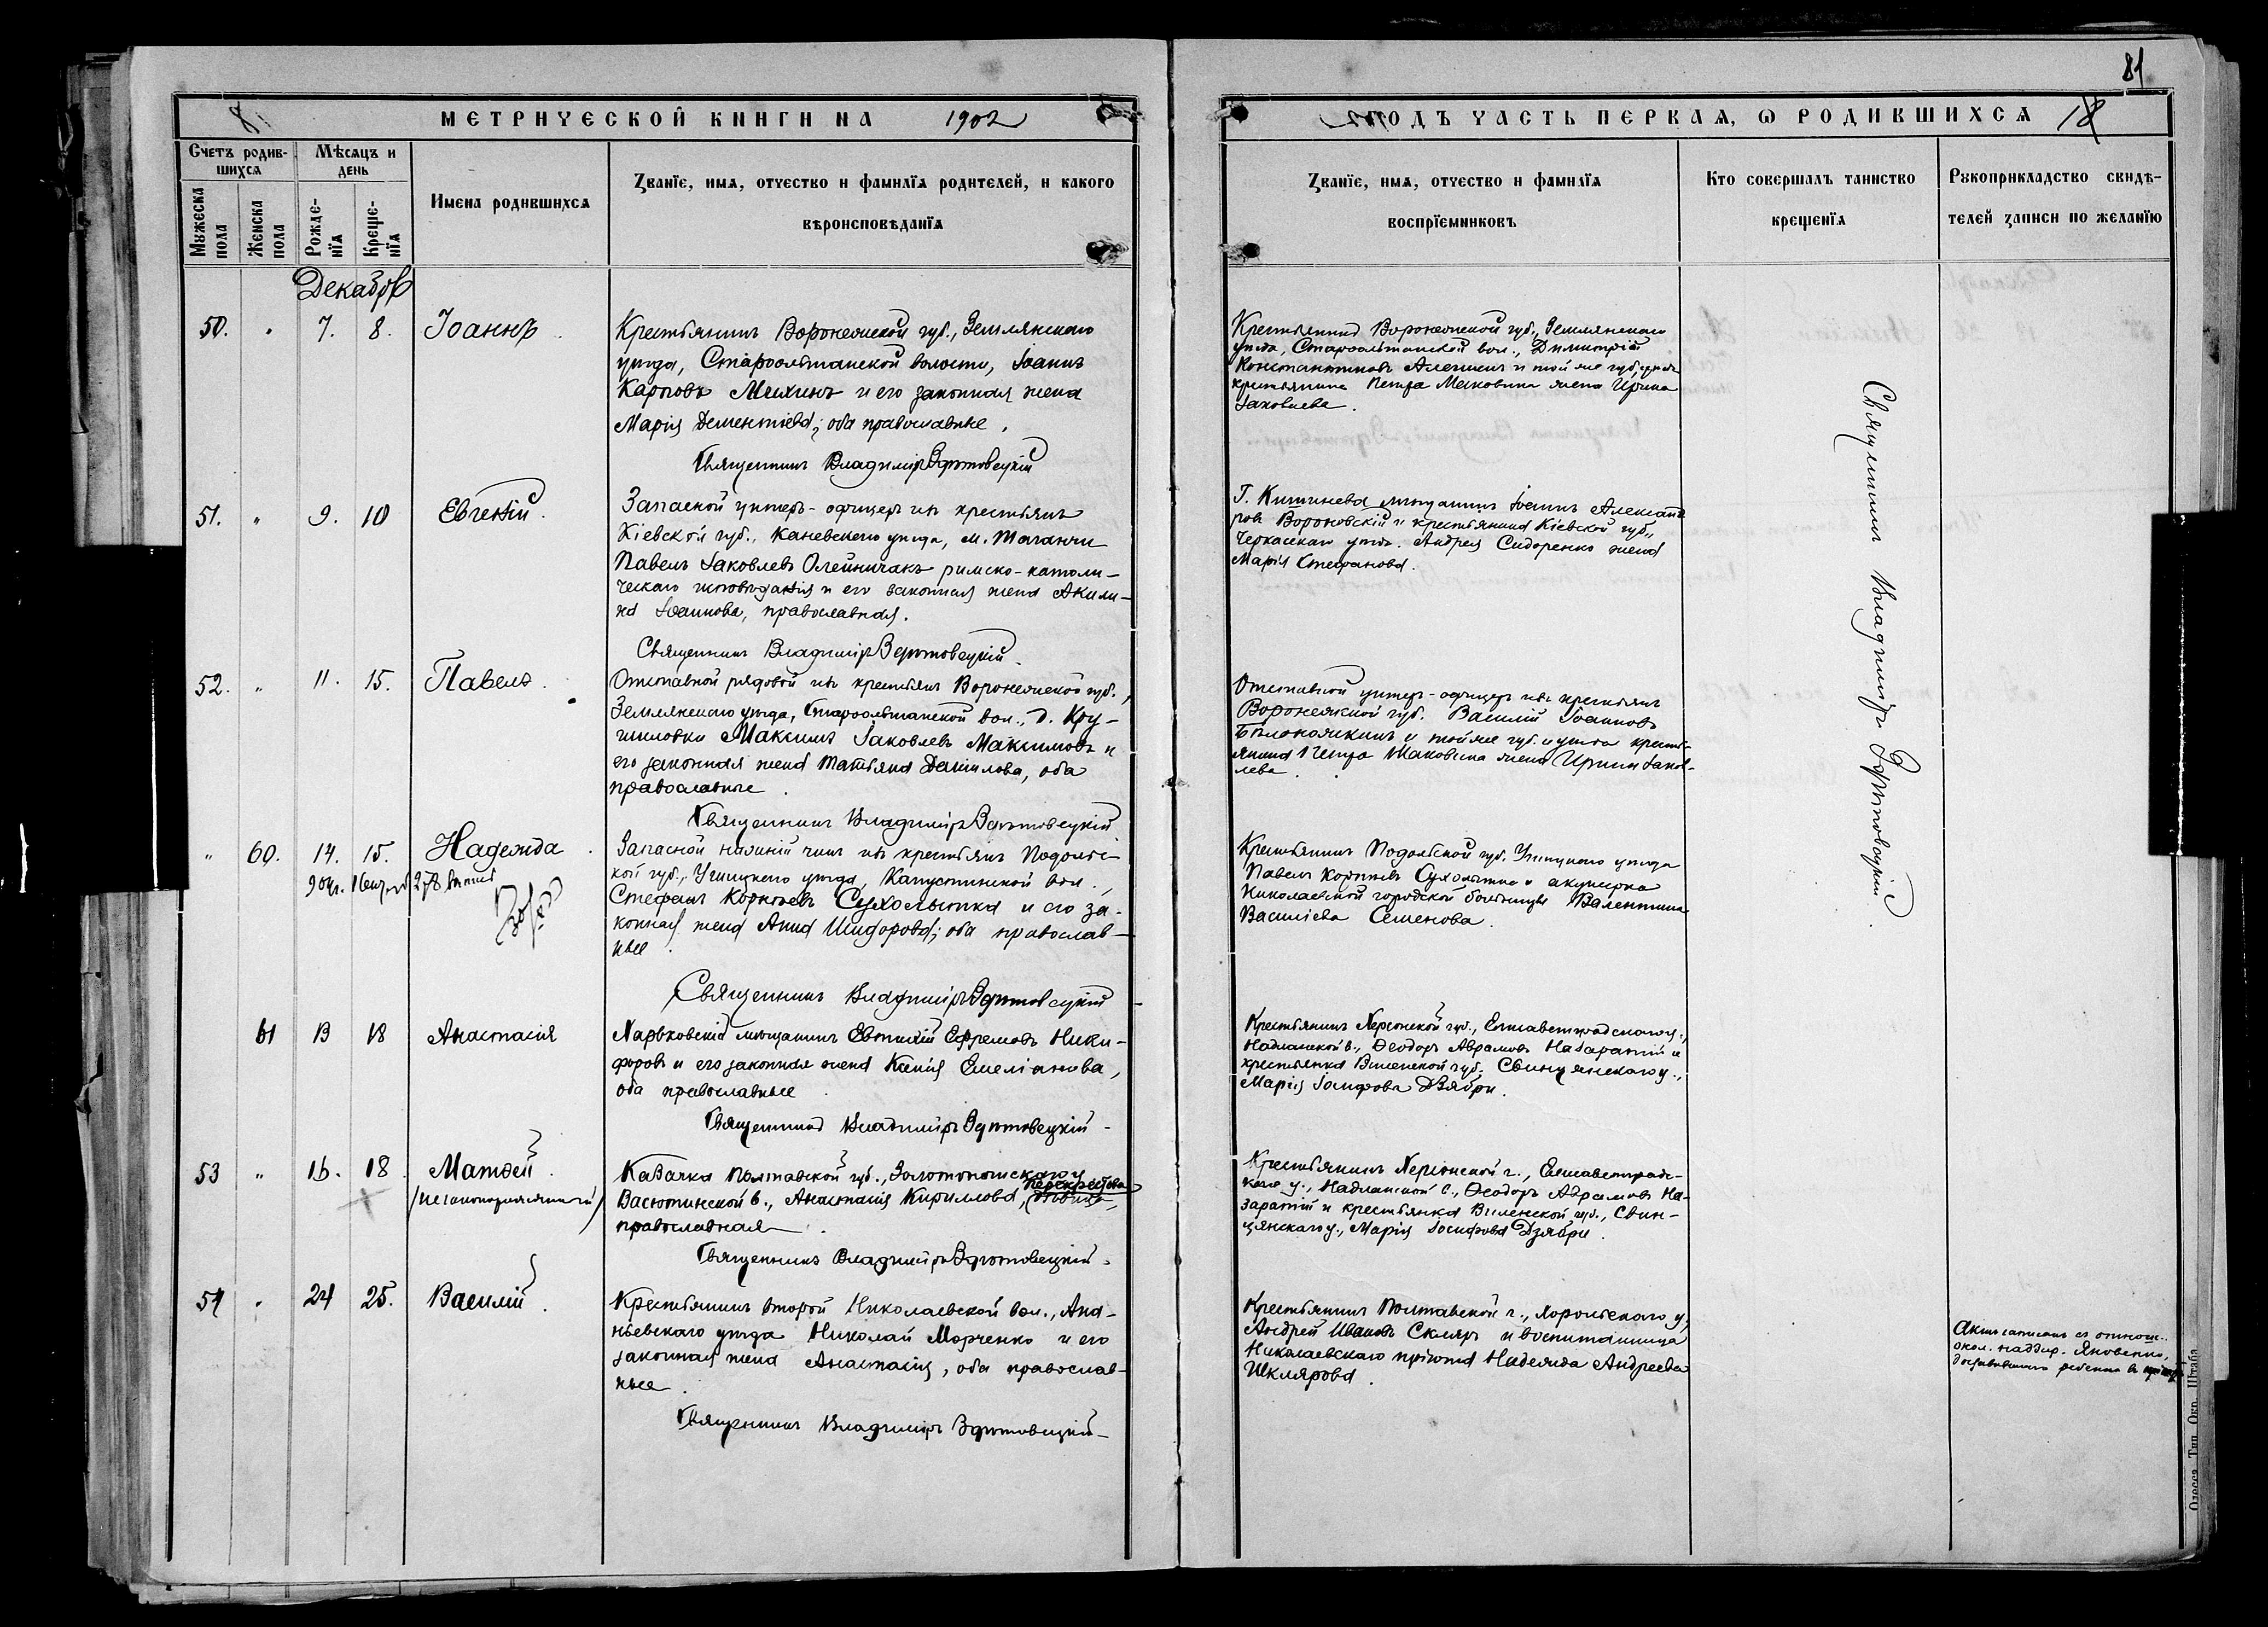 81
МЕТРИЧЕСКОЙ КНИГИ НА 1902
ГОДЪ ЧАСТЬ ПЕРВАЯ, Ѡ РОДИВШИХСЯ
Счетъ родив-
шихся
Мужеска
пола
Женска
пола
Мѣсяцъ и
день
Рожде-
нїя
Креще-
нїя
Имена родившихся
Званїе, имя, отчество и фамилїя родителей, и какого
вѣроисповѣданїя
Званїе, имя, отчество и фамилїя
воспрїемниковъ
Кто совершалъ таинство
крещенїя
Рукоприкладство свидѣ-
телей записи по желанїю
Декабрь
50. „ 7. 8. Іоаннъ.
Крестьянинъ Воронежской губ., Землянскаго
уѣзда, Староольшанской волости, Іоаннъ
Карповъ Михинъ и его законная жена
Марія Дементіева; оба православные.
Священникъ Владиміръ
Крестьянинъ Воронежской губ., Землянскаго
уѣзда, Староольшанской вол., Димитрій
Константиновъ и той же губ.
крестьянина Петра Маковина жена Ирина
Іаковлева.
51. „ 9. 10 Евгеній.
Запасной унтеръ-офицеръ изъ крестьянъ
Кіевской губ., Каневскаго уѣзда, м. Таганчи
Павелъ Іаковлевъ Олейничакъ римско-католи-
ческаго исповѣданія и его законная жена Акили-
на Іоаннова, православная.
Священникъ Владиміръ
Г. Кишинева мѣщанинъ Іоаннъ Александ
ровъ Вороновскій и крестьянина Кіевской губ.,
Черкасскаго уѣзда. Андрея Сидоренко жена
Марія Стефанова.
52. „ 11. 15. Павелъ.
Отставной рядовой изъ крестьянъ Воронежской губ.,
Землянскаго уѣзда, Староольшанской вол., д. Кру-
шиловки Максимъ Іаковлевъ Максимовъ и
его законная жена Татьяна Даніилова, оба
православные.
Священникъ Владиміръ
Отставной унтеръ-офицеръ изъ крестьянъ
Воронежской губ. Василій Іоанновъ
Бѣлокопкинъ и той же губ. и уѣзда кресть-
янина Петра Маковина жена Ирина Іаков-
лева.
„ 60. 14. 15. Надежда.
Запасной нижній чинъ изъ крестьянъ Подольс-
кой губ., Ушицкаго уѣзда, Капустинской вол.,
Стефанъ Корніевъ Сухолытка и его за-
конная жена Анна Исидорова; оба православ-
ные.
Священникъ Владиміръ
Крестьянинъ Подольской губ. Ушицкаго уѣзда
Павелъ Корніевъ Сухолытка и акушерка
Николаевской городской больницы Валентина
Василіева Семенова.
61 13 18 Анастасія
Харьковскій мѣщанинъ Евѳимій Ефремовъ Ники-
форовъ и его законная жена Ксенія Емеліанова,
оба православные.
Священникъ Владиміръ
Крестьянинъ Херсонской губ., Елисаветградскаго у.,
Надлакской в., Ѳеодоръ Аврамовъ Назаратій и
крестьянка Виленской губ. Свинцянскаго у.,
Марія Іосифова Дзябри.
53 „ 16. 18. Матѳей.
(незаконнорожденный)
Казачка Полтавской губ., Золотоношскаго у.
Васютинской в., Анастасія Кириллова, Перекрестова
дѣвица,
православная.
Священникъ Владиміръ
Крестьянинъ Херсонской г., Елисаветградс-
каго у., Надлакской в., Ѳеодоръ Абрамовъ На-
заратій и крестьянка Виленской губ., Свин-
цянскаго у., Марія Іосифова Дзябри.
54 „ 24 25. Василій.
Крестьянинъ второй Николаевской вол., Ана-
ньевскаго уѣзда Николай Марченко и его
законная жена Анастасія, оба православ-
ные.
Священникъ Владиміръ
Крестьянинъ Полтавской г., Хорольскаго у.
Андрей Ивановъ Скляръ и воспитанница
Николаевскаго пріюта Надежда Андреева
Шклярова.
Актъ записанъ съ отнош.
окол. надзир. Яковенко,
доставившаго ребенка въ пріютъ
Священникъ Владиміръ
Одесса. Тип. Окр. Штаба